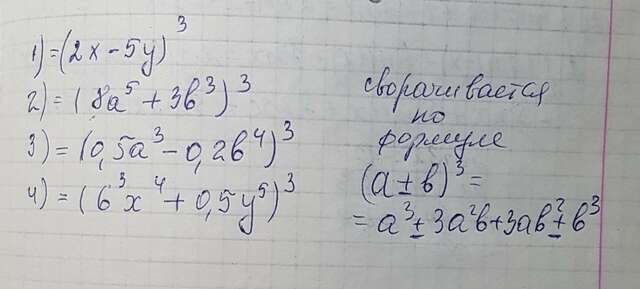 1) = (2x - 5y)³
2) = (8a⁵ + 3b³)³
3) = (0,5a³ - 0,2b⁴)³
4) = (6³x⁴ + 0,5y⁵)³
сворачивается
по
формуле
(a ± b)³ =
= a³ ± 3a²b + 3ab² ± b³